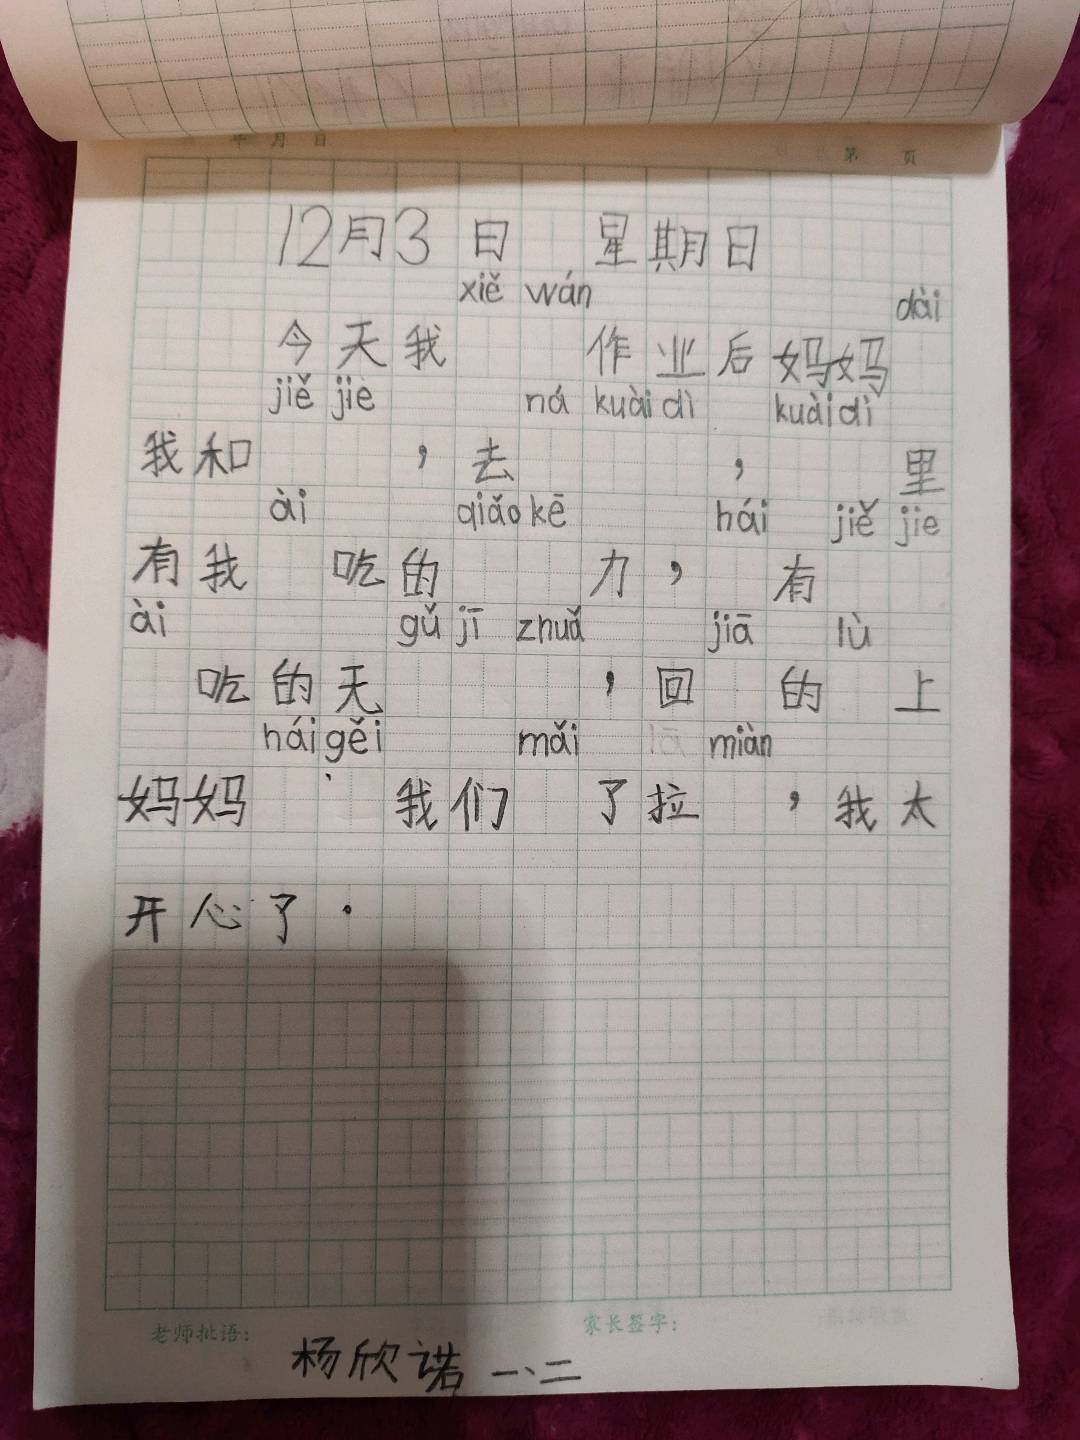 年 月 日
第 页
12月3日 星期日
xiě wán dài
今天我 作业后妈妈
jiě jie ná kuài dì kuài dì
我和 ，去 ， 里
ài qiǎo kē hái jiě jie
有我 吃的 力，有
ài gǔ jī zhuǎ jiā lù
吃的天 ，回 的 上
hái gěi mǎi miàn
妈妈 我们 了拉 ，我太
开心了.
老师批语: 家长签字:
杨欣诺 一、二